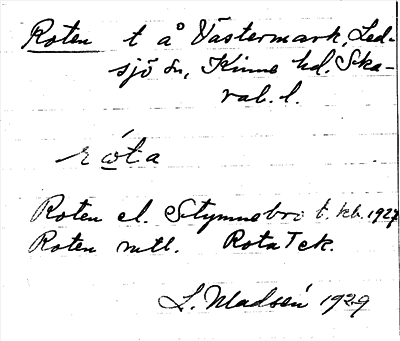 Roten t å Västermark, Led-
sjö sn, Kinne hd. Ska-
rab. l.
ròta
Roten el. Stymnebro t. kb. 1927
Roten mtl. Rota Tek.
L. Madsén 1929